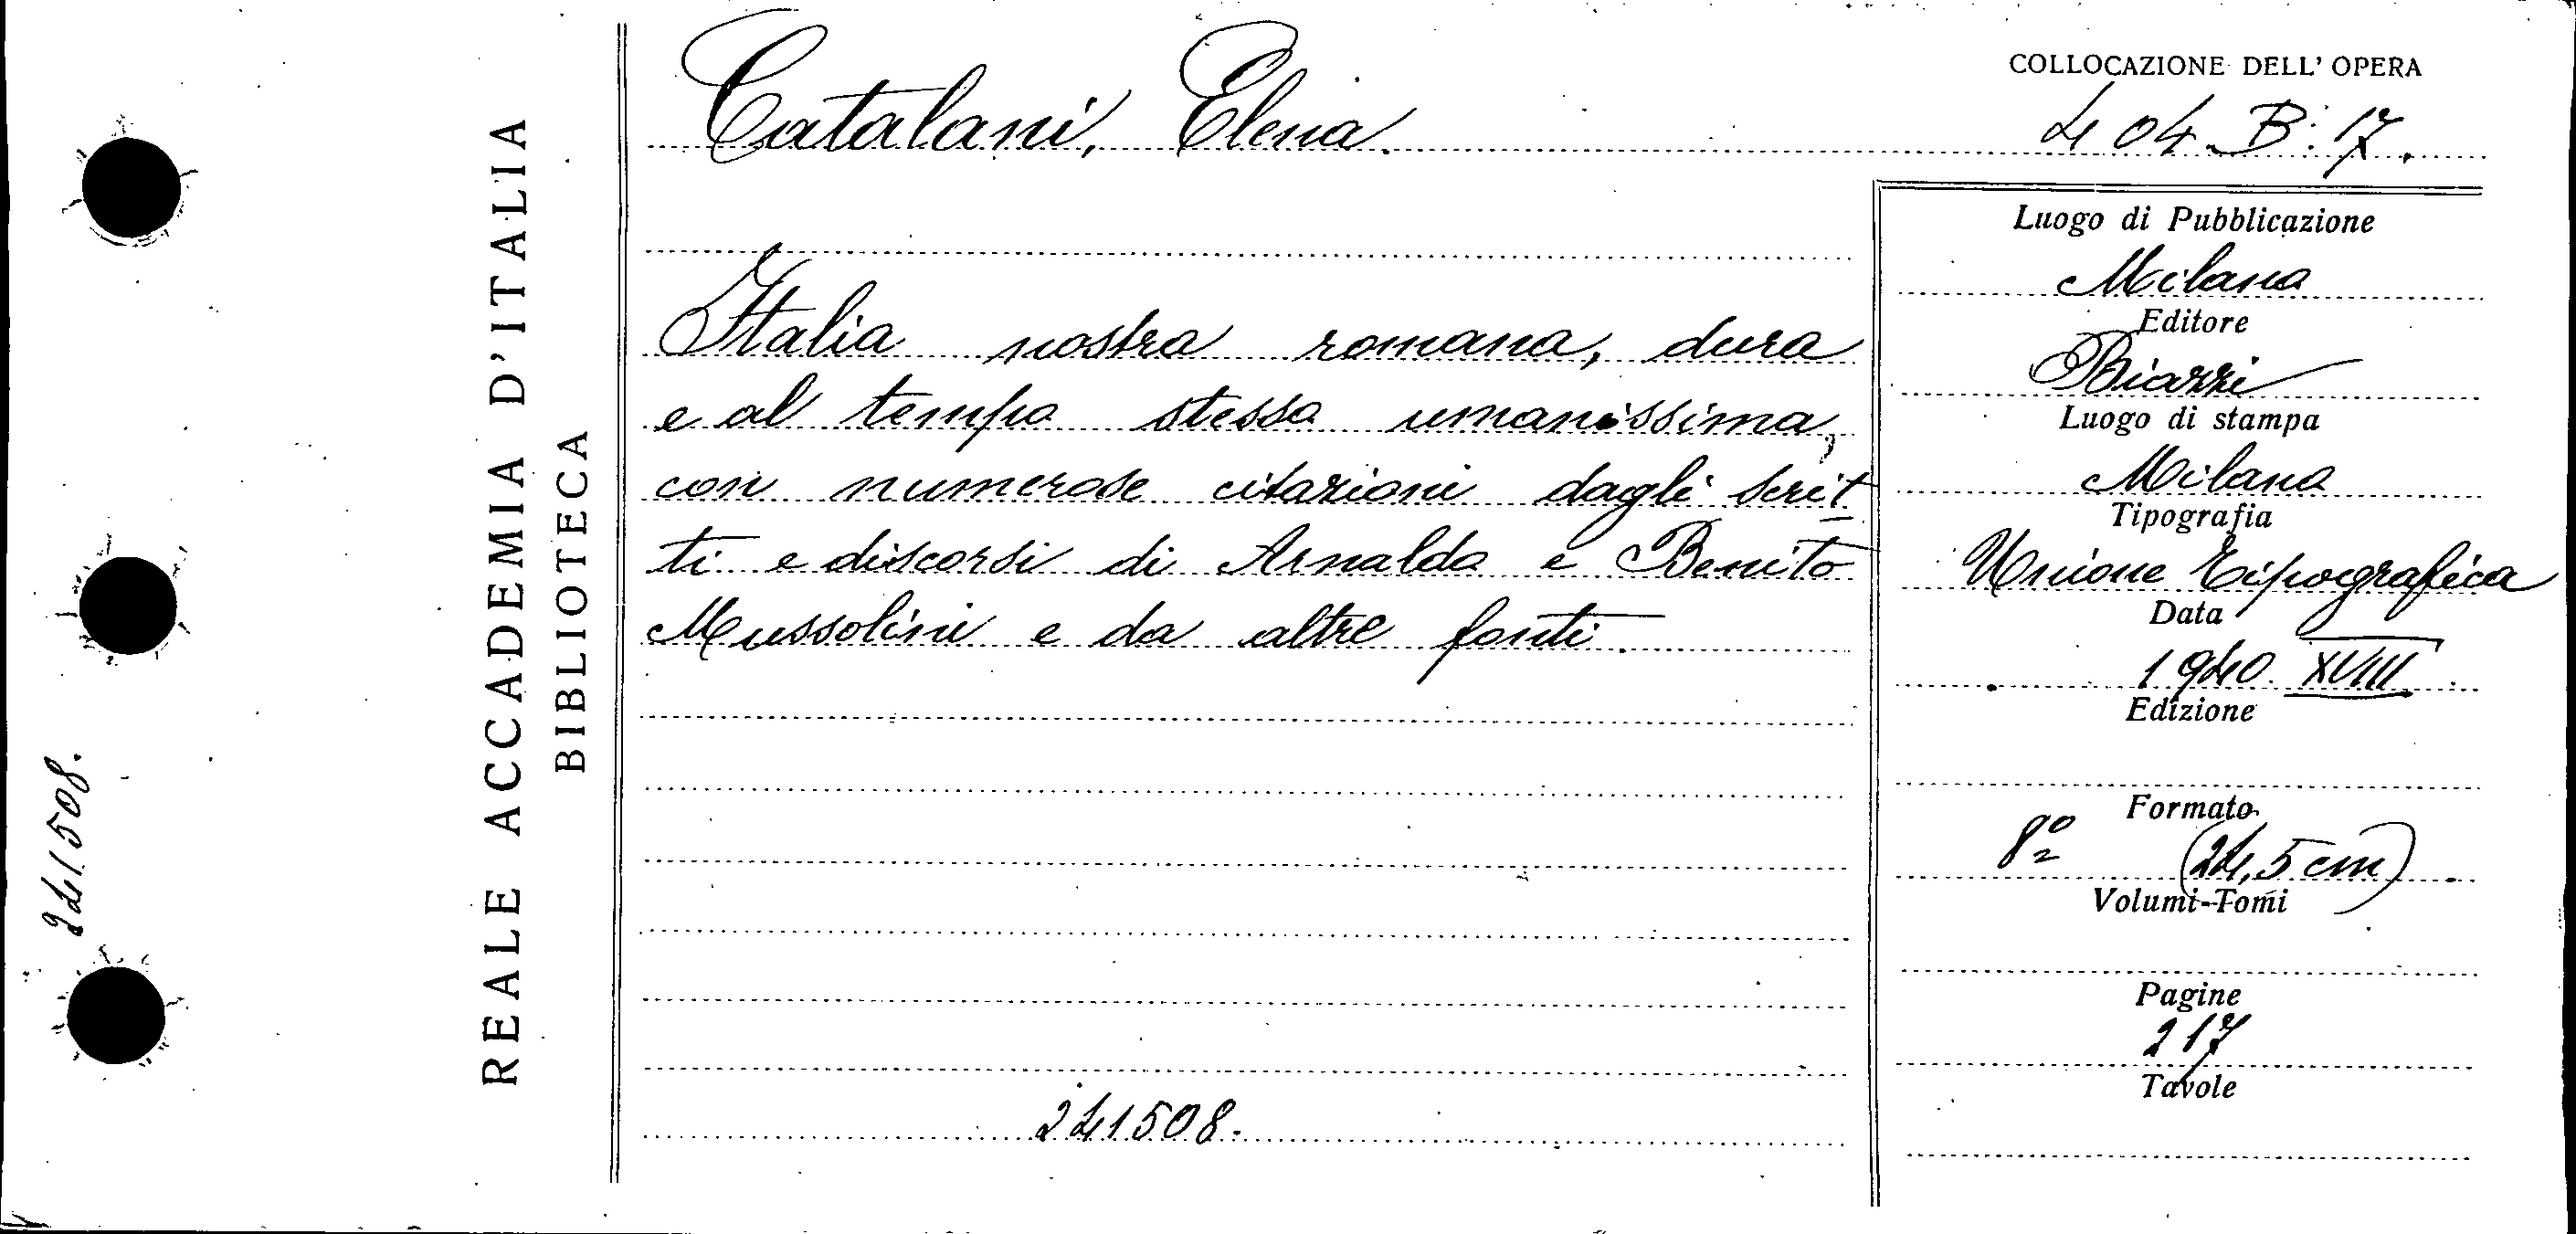 241508.
REALE ACCADEMIA D'ITALIA
BIBLIOTECA
Catalani, Elena.
Italia nostra romana, dura
e al tempo stesso umanissima,
con numerose citazioni dagli scrit
ti e discorsi di Arnaldo e Benito
Mussolini e da altre fonti.
241508.
COLLOCAZIONE DELL' OPERA
404. B. 17.
Luogo di Pubblicazione
Milano
Editore
Biazzi
Luogo di stampa
Milano
Tipografia
Unione Tipografica
Data
1940. XVIII
Edizione
Formato
8º (24,5 cm).
Volumi-Tomi
Pagine
217
Tavole